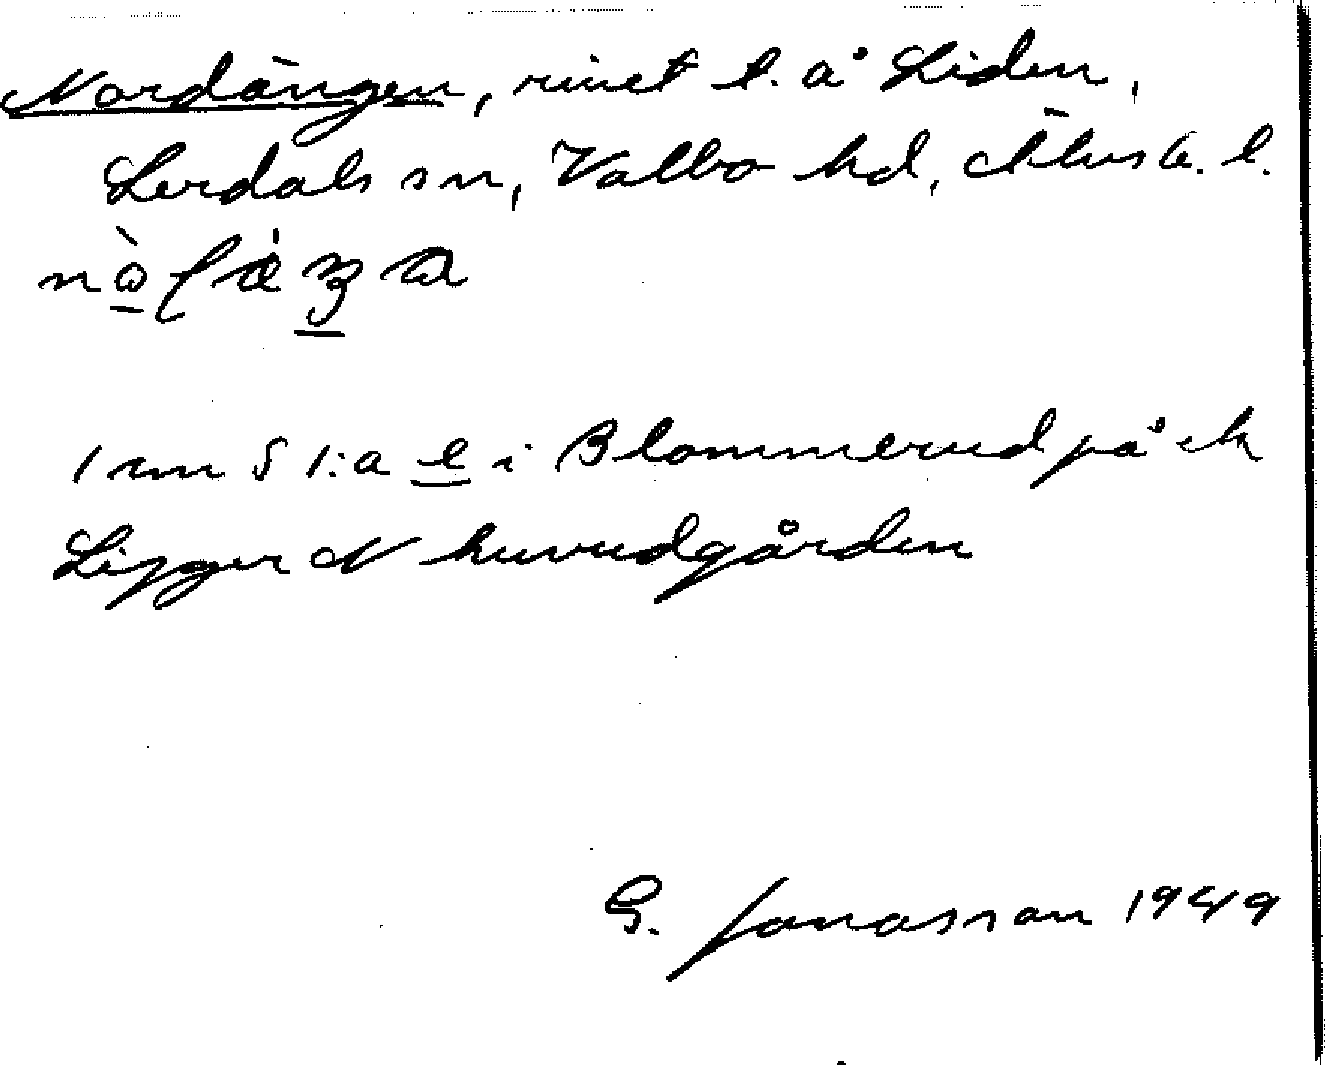 Nordängen, rivet t. å Liden,
Lerdals sn, Valbo hd, Älvsb. l.
1 km S 1:a e i Blommerud på ek
Ligger N huvudgården
G. Jonasson 1949